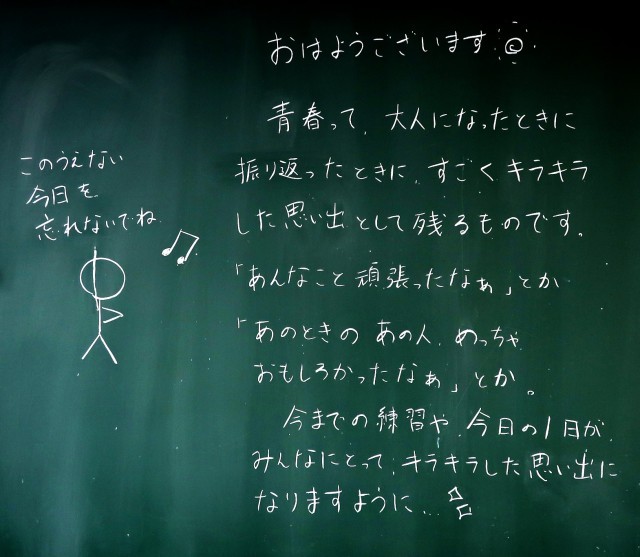 おはようございます
青春って、大人になったときに
振り返ったときに、すごくキラキラ
した思い出として残るものです。
「あんなこと頑張ったなぁ」とか
「あのときのあの人、めっちゃ
おもしろかったなぁ」とか。
今までの練習や、今日の1日が、
みんなにとって、キラキラした思い出に
なりますように…
このうえない
今日を
忘れないでね